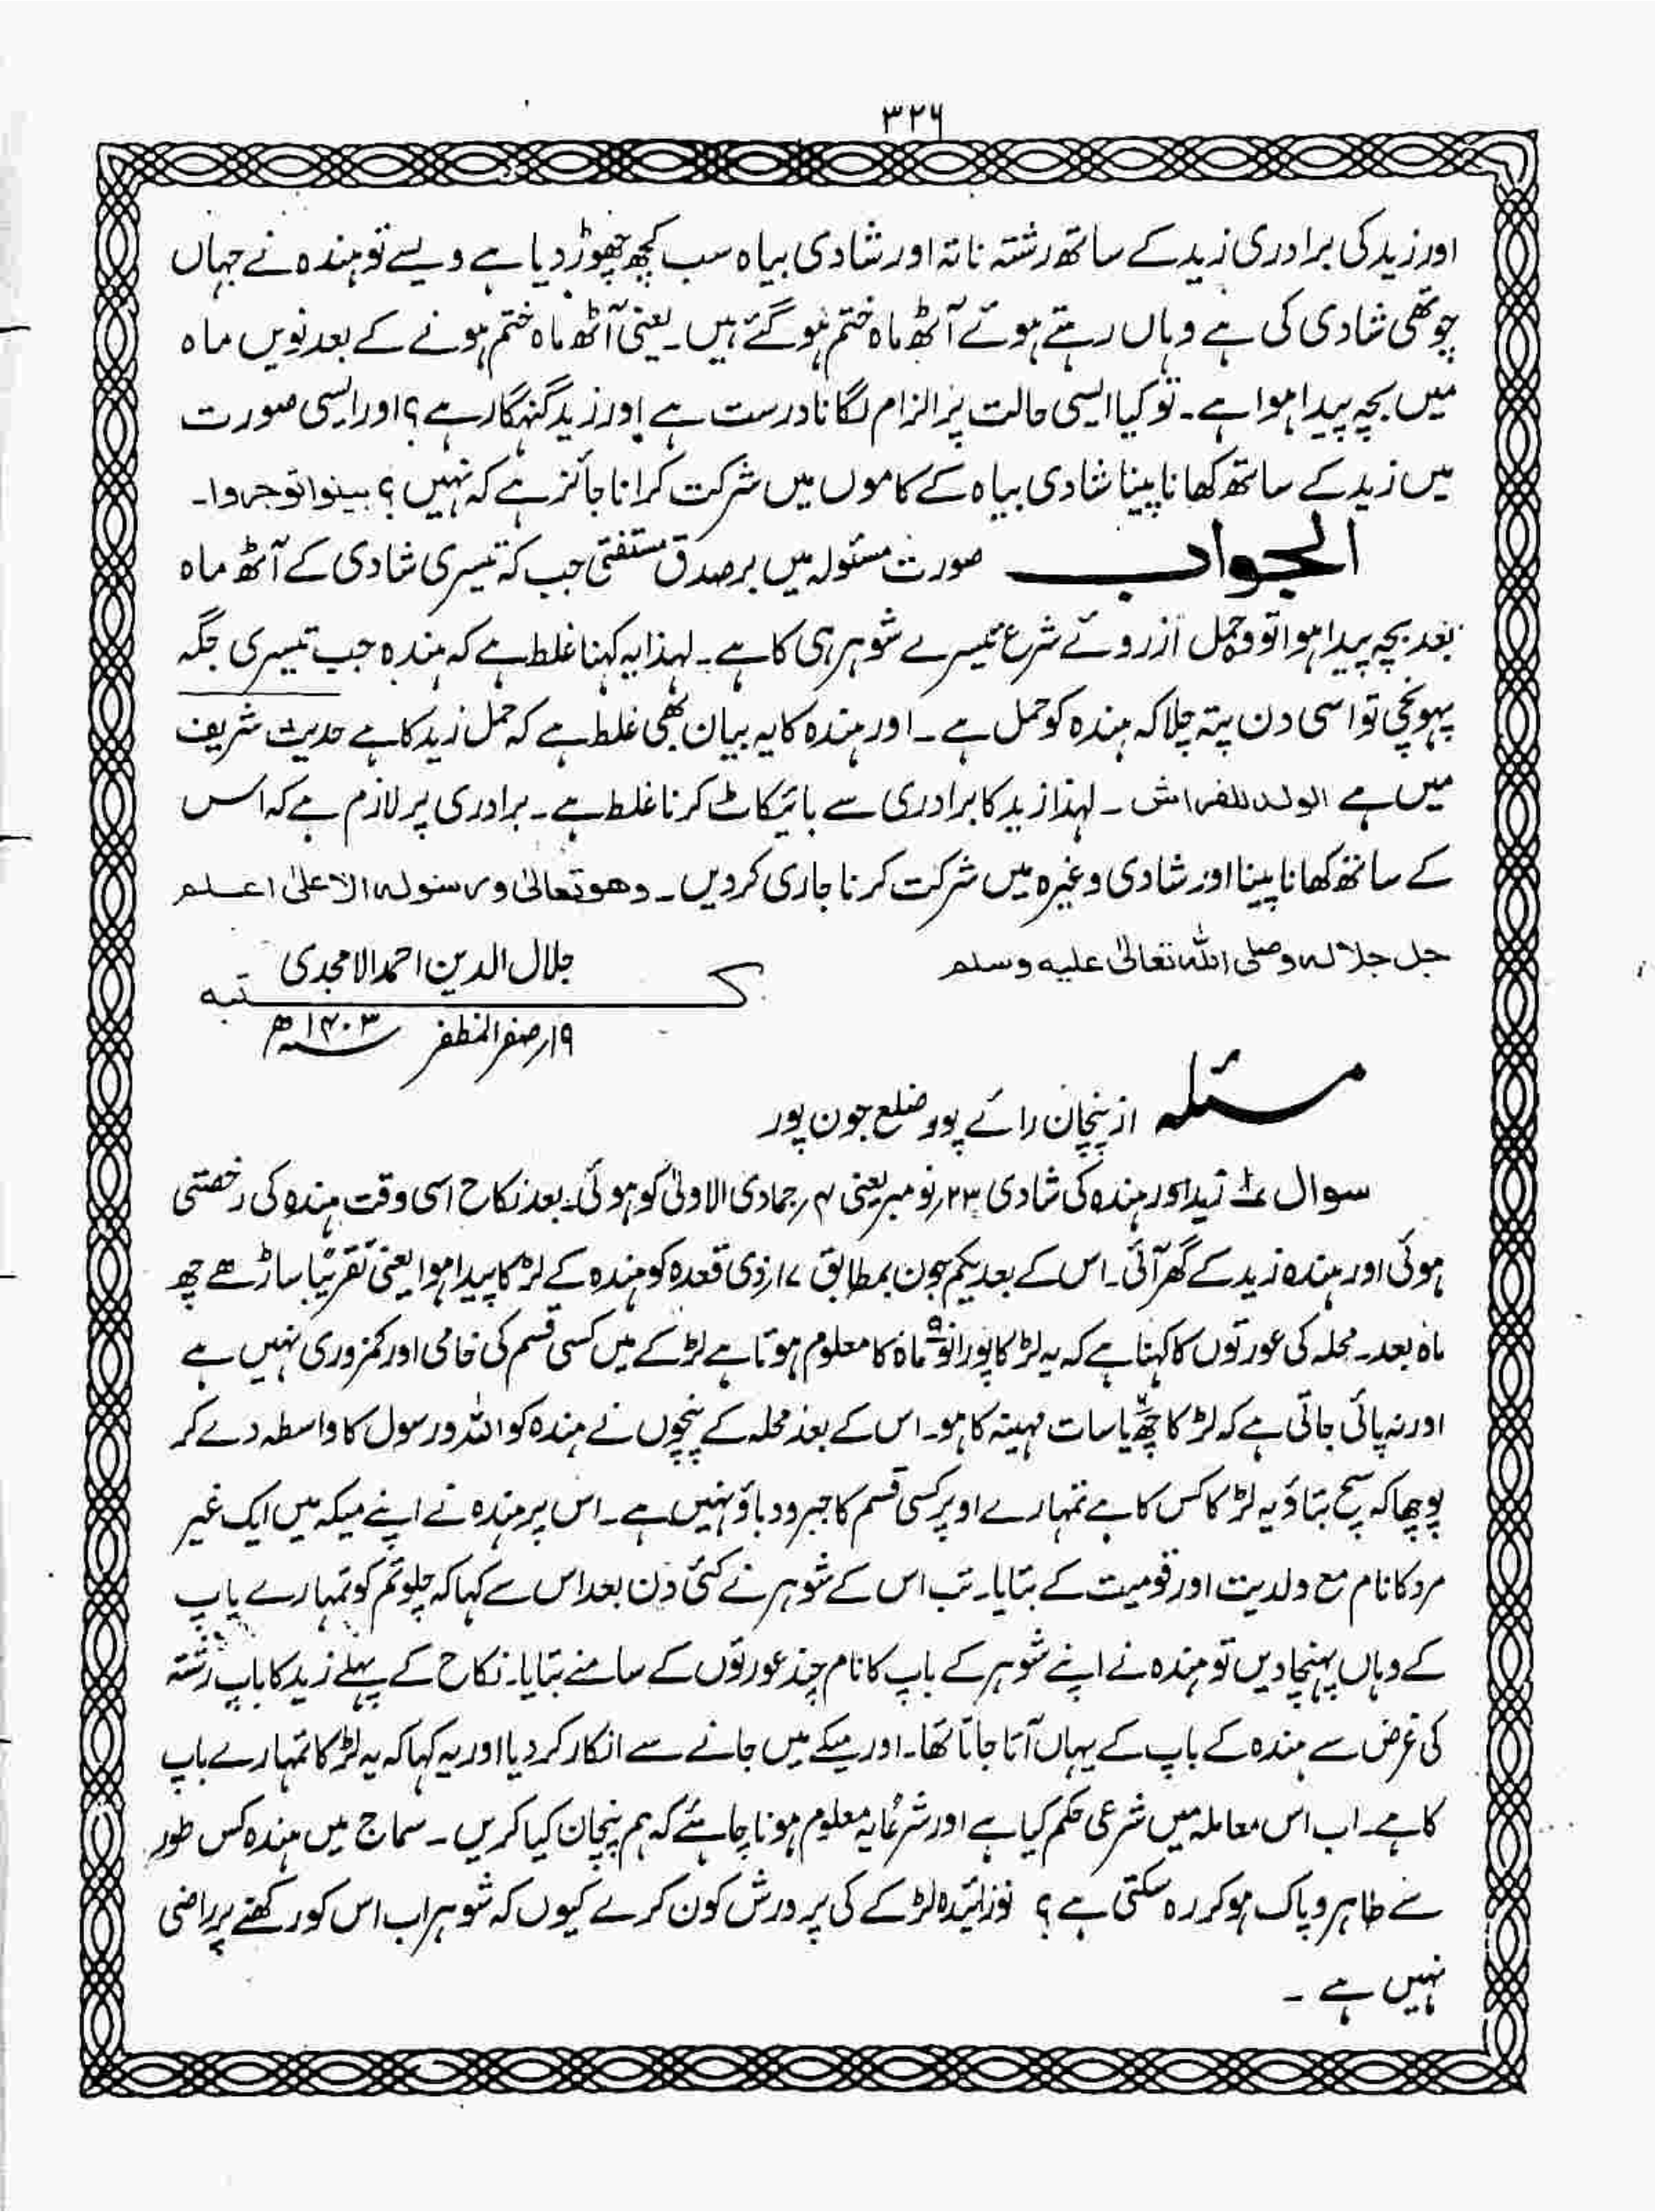 ۳۲۶
اور زید کی برادری زید کے ساتھ رشتہ ناتہ اور شادی بیاہ سب کچھ چھوڑ دیا ہے ویسے تو ہندہ نے جہاں
چوتھی شادی کی ہے وہاں رہتے ہوئے آٹھ ماہ ختم ہو گئے ہیں۔ یعنی آٹھ ماہ ختم ہونے کے بعد نویں ماہ
میں بچہ پیدا ہوا ہے۔ تو کیا ایسی حالت پر الزام لگانا درست ہے اور زید گنہگار ہے؟ اور ایسی صورت
میں زید کے ساتھ کھانا پینا شادی بیاہ کے کاموں میں شرکت کرانا جائز ہے کہ نہیں؟ بینوا توجروا۔
الجواب صورت مسئولہ میں بر صدق مستفتی جب کہ تیسری شادی کے آٹھ ماہ
بعد بچہ پیدا ہوا تو وہ حمل از روئے شرع تیسرے شوہر ہی کا ہے۔ لہذا یہ کہنا غلط ہے کہ ہندہ جب تیسری جگہ
پہونچی تو اسی دن پتہ چلا کہ ہندہ کو حمل ہے۔ اور ہندہ کا یہ بیان بھی غلط ہے کہ حمل زید کا ہے حدیث شریف
میں ہے الولد للفراش ۔ لہذا زید کا برادری سے بائیکاٹ کرنا غلط ہے۔ برادری پر لازم ہے کہ اس
کے ساتھ کھانا پینا اور شادی وغیرہ میں شرکت کرنا جاری کردیں۔ وھو تعالیٰ ورسولہ الاعلیٰ اعلم
جل جلالہ وصلی اللہ تعالیٰ علیہ وسلم
جلال الدین احمد الامجدی
کتبہ
۱۹؍ صفر المظفر ۱۴۰۳ھ
مسئلہ از پنچان رائے پور ضلع جون پور
سوال ۱ زید اور ہندہ کی شادی ۲۳؍ نومبر یعنی ۴؍ جمادی الاولیٰ کو ہوئی۔ بعد نکاح اسی وقت ہندہ کی رخصتی
ہوئی اور ہندہ زید کے گھر آئی۔ اس کے بعد یکم جون بمطابق ۱۷؍ ذی قعدہ کو ہندہ کے لڑکا پیدا ہوا یعنی تقریباً ساڑھے چھ
ماہ بعد۔ محلہ کی عورتوں کا کہنا ہے کہ یہ لڑکا پورا نو ۹ ماہ کا معلوم ہوتا ہے لڑکے میں کسی قسم کی خامی اور کمزوری نہیں ہے
اور نہ پائی جاتی ہے کہ لڑکا چھ یا سات مہینہ کا ہو۔ اس کے بعد محلہ کے پنچوں نے ہندہ کو اللہ و رسول کا واسطہ دے کر
پوچھا کہ سچ بتاؤ یہ لڑکا کس کا ہے تمہارے اوپر کسی قسم کا جبر و دباؤ نہیں ہے۔ اس پر ہندہ نے اپنے میکہ میں ایک غیر
مرد کا نام مع ولدیت اور قومیت کے بتایا۔ تب اس کے شوہر نے کئی دن بعد اس سے کہا کہ چلو تم کو تمہارے باپ
کے وہاں پہنچا دیں تو ہندہ نے اپنے شوہر کے باپ کا نام چند عورتوں کے سامنے بتایا۔ نکاح کے پہلے زید کا باپ رشتہ
کی غرض سے ہندہ کے باپ کے یہاں آتا جاتا تھا۔ اور میکے میں جانے سے انکار کر دیا اور یہ کہا کہ یہ لڑکا تمہارے باپ
کا ہے۔ اب اس معاملہ میں شرعی حکم کیا ہے اور شرعًا یہ معلوم ہونا چاہئے کہ ہم پنچان کیا کریں۔ سماج میں ہندہ کس طور
سے طاہر و پاک ہو کر رہ سکتی ہے؟ نوزائیدہ لڑکے کی پرورش کون کرے کیوں کہ شوہر اب اس کو رکھنے پر راضی
نہیں ہے ۔